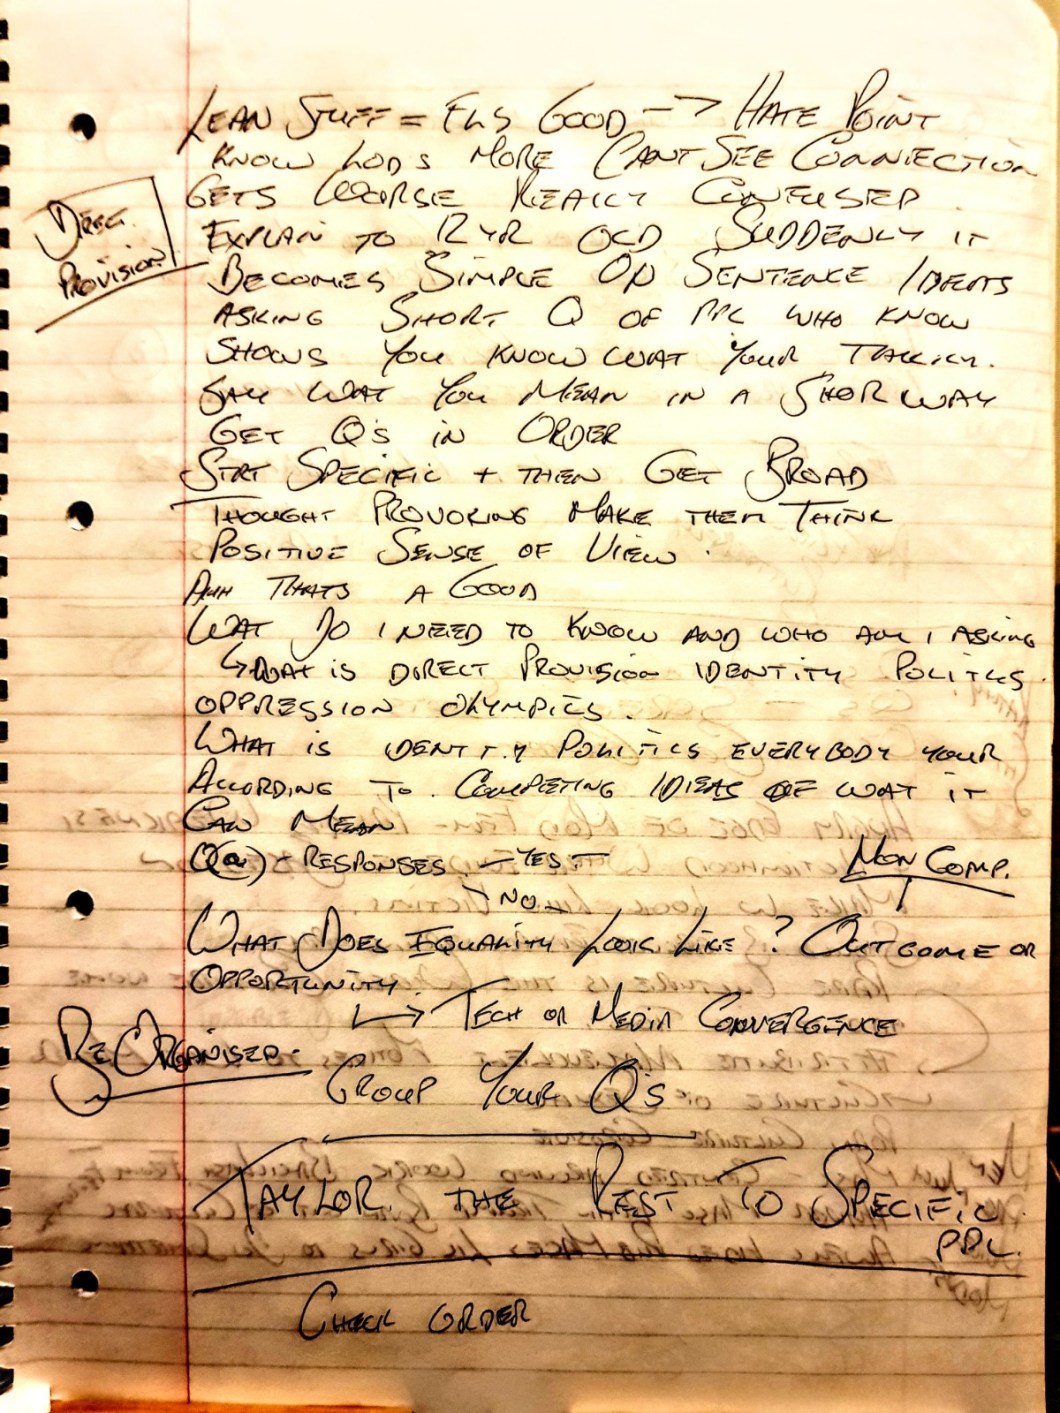 LEAN STUFF = FLS GOOD -> HATE POINT
KNOW LODS MORE CANT SEE CONNECTION
GETS WORSE REALLY CONFUSED.
DIREC. PROVISION
EXPLAIN TO 12 YR OLD SUDDENLY IT
BECOMES SIMPLE ON SENTENCE IDEAS
ASKING SHORT Q OF PPL WHO KNOW
SHOWS YOU KNOW WAT YOUR TALKIN.
SAY WAT YOU MEAN IN A SHOR WAY
GET Q'S IN ORDER
STRT SPECIFIC + THEN GET BROAD
THOUGHT PROVOKING MAKE THEM THINK
POSITIVE SENSE OF VIEW.
AHH THATS A GOOD
WAT DO I NEED TO KNOW AND WHO AM I ASKING
↳ WAT IS DIRECT PROVISION IDENTITY POLITICS.
OPPRESSION OLYMPICS.
WHAT IS IDENTITY POLITICS EVERYBODY YOUR
ACCORDING TO COMPETING IDEAS OF WAT IT
CAN MEAN
Q(a) - RESPONSES - YES -
NO -
MON COMP.
WHAT DOES EQUALITY LOOK LIKE? OUTCOME OR
OPPORTUNITY.
↳ TECH OR MEDIA CONVERGENCE
RE ORGANISED.
GROUP YOUR Q'S
TAYLOR THE REST TO SPECIFIC
PPL.
CHECK ORDER